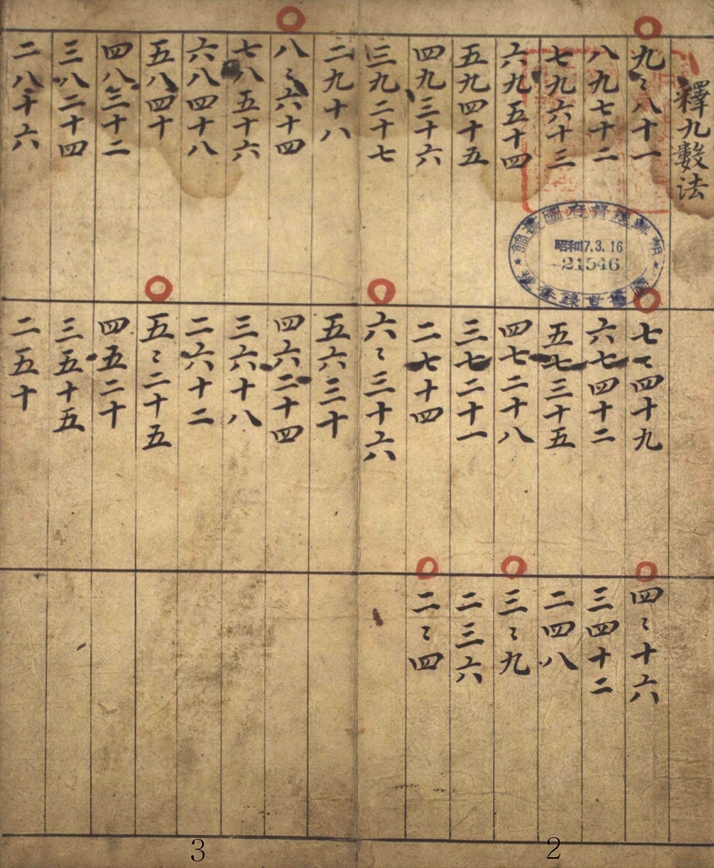 釋九數法
九〻八十一
八九七十二
七九六十三
六九五十四
五九四十五
四九三十六
三九二十七
二九十八
八〻六十四
七八五十六
六八四十八
五八四十
四八三十二
三八二十四
二八十六
七〻四十九
六七四十二
五七三十五
四七二十八
三七二十一
二七十四
六〻三十六
五六三十
四六二十四
三六十八
二六十二
五〻二十五
四五二十
三五十五
二五十
四〻十六
三四十二
二四八
三〻九
二三六
二〻四
朝鮮總督府圖書館
昭和17.3.16
21546
2
3